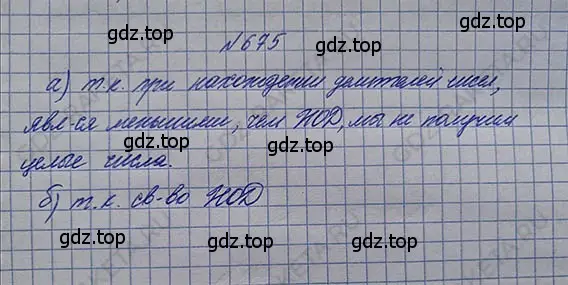 №675
а) т.к. при нахождении делителей чисел,
явл-ся меньшими, чем НОД, мы не получим
целые числа.
б) т.к. св-во НОД
gdz.top
gdz.top
gdz.top
gdz.top
gdz.top
gdz.top
gdz.top
gdz.top
gdz.top